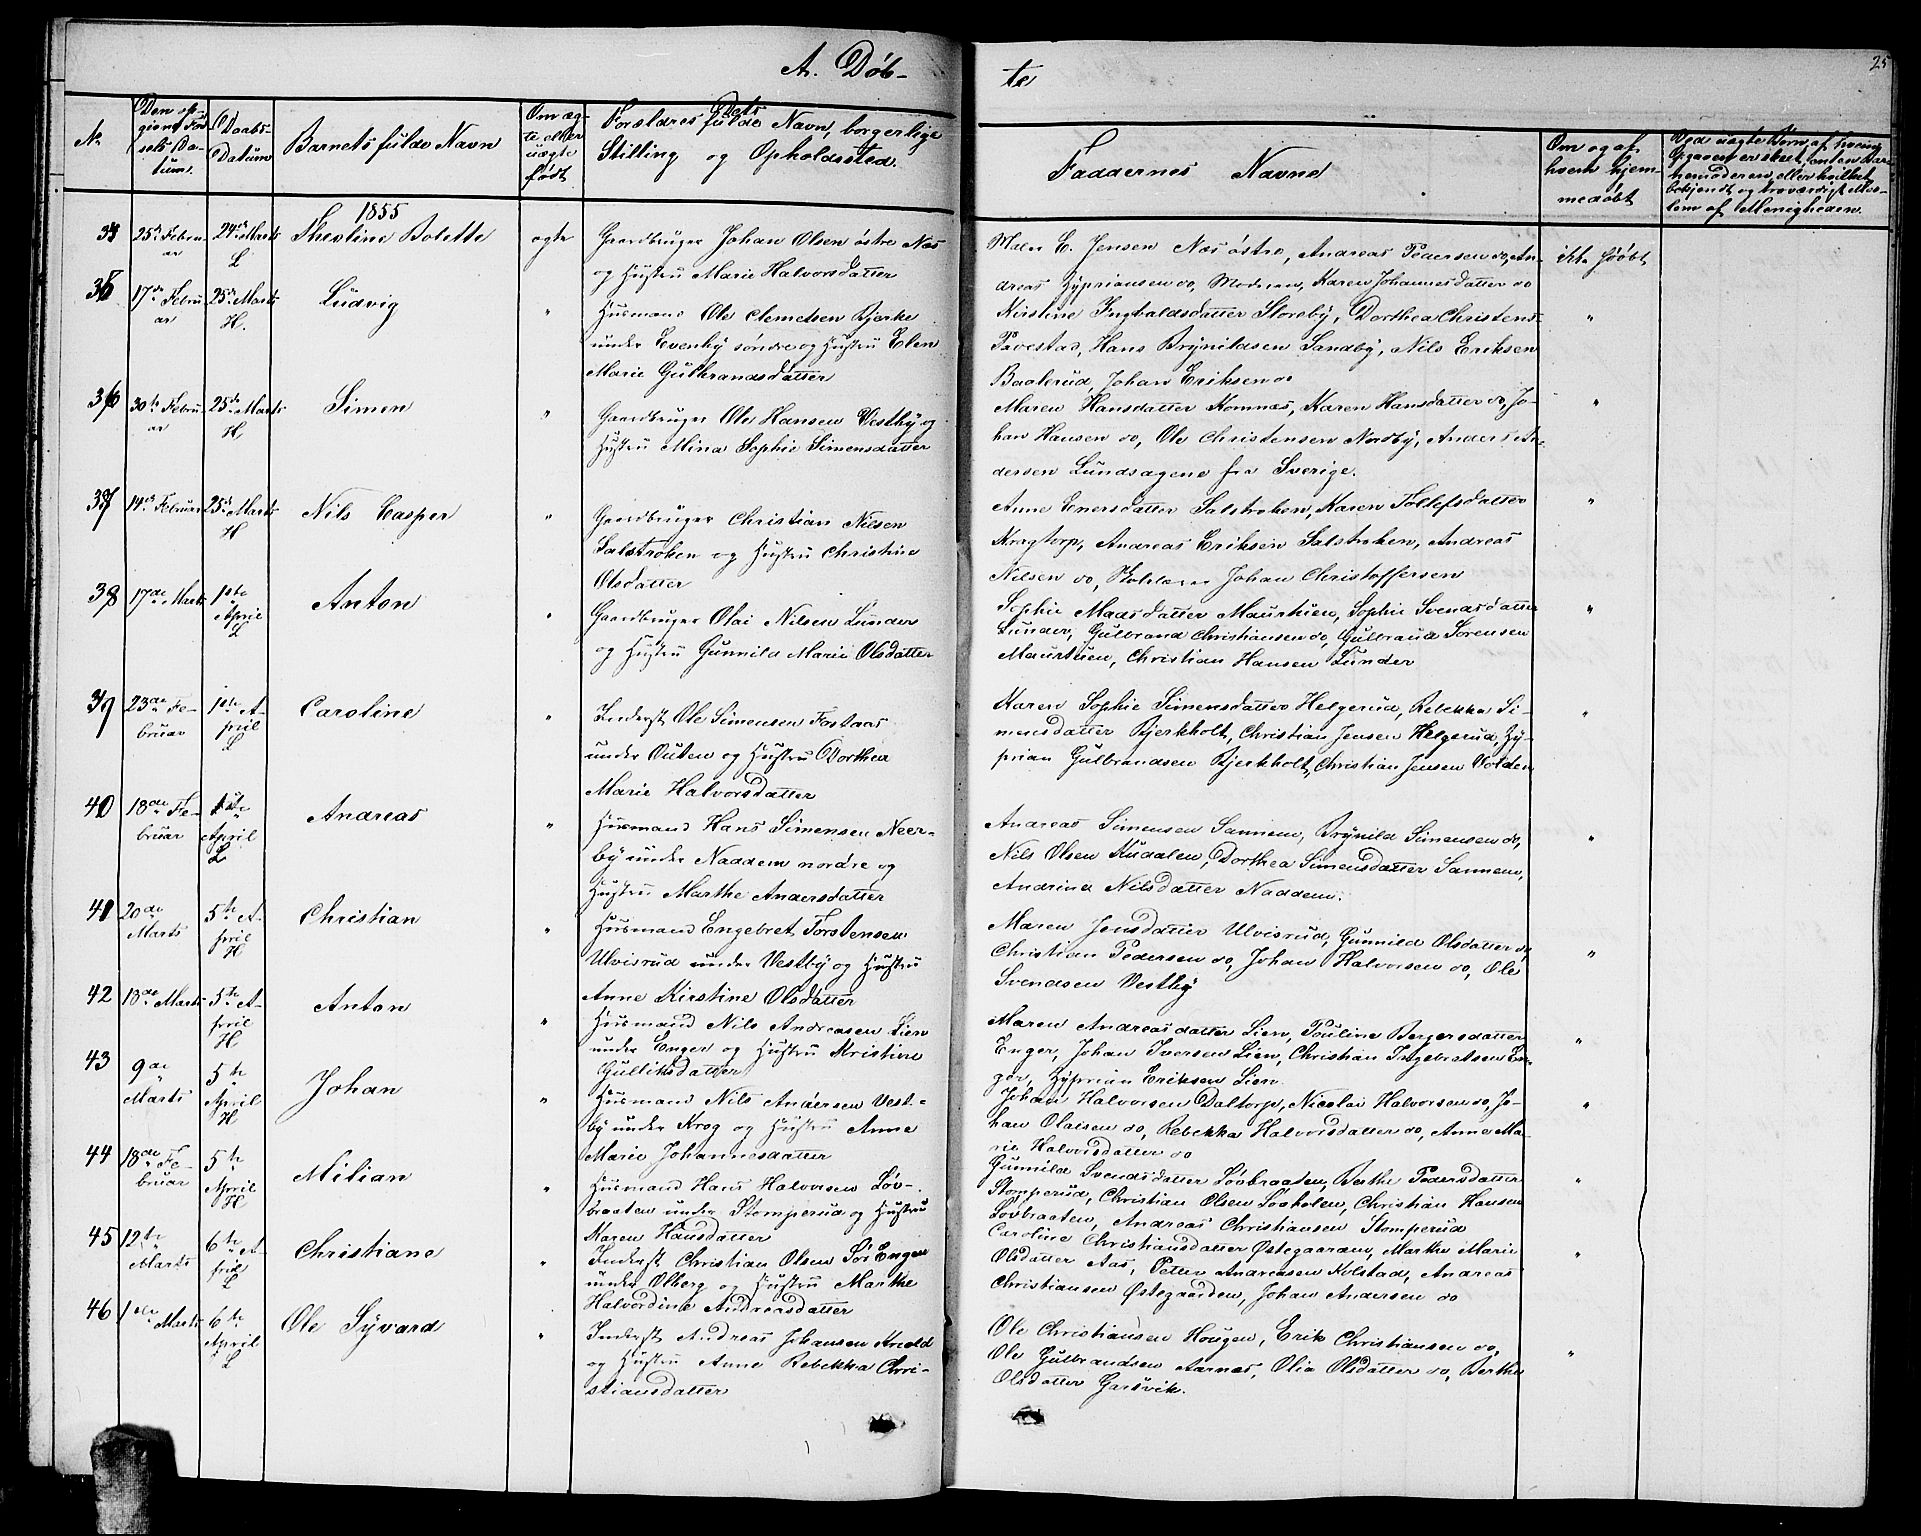 A. Døb-
te
25
No
Den op-
givne Fød-
sels Da-
tum.
Daabs-
Datum
Barnets fulde Navn
Om æg-
te eller
uægte
født
Forældres fulde Navn, borgerlige
Stilling og Opholdssted.
Faddernes Navne
Om og af
hvem hjem-
medøbt
1855
34
25de Febru-
ar
24de Marts
L
Theoline Bolette
ægte
Gaardbruger Johan Olsen østre Næs
og Hustru Marie Halvorsdatter
E. Jensen Næs østre, Andreas Pedersen do, An-
dreas Zÿpriansen do, Moderen, Karen Johannesdatter do
35
17de Febru
ar
25de Marts
H.
Ludvig
"
Husmand Ole Clemetsen Bjerke
under Evenby søndre og Hustru Elen
Marie Gulbrandsdatter
Kirstine Ingbaldsdatter Storeby, Dorthea Christens-
Tavestad, Hans Brÿnildsen Sandbÿ, Nils Eriksen
Baalerud, Johan Eriksen do
"
36
30te Febru
ar
25de Marts
H
Simen
"
Gaardbruger Ole Hansen Vestbÿ og
Hustru Mina Sophie Simensdatter
Maren Hansdatter Komnæs, Karen Hansdatter do, Jo-
han Hansen do, Ole Christensen Nordbÿ, Anders An-
dersen Lundsagene fra Sverige.
"
37
14de Februar
25de Marts
H
Nils Casper
"
Gaardbruger Christian Nielsen
Salstrøken og Hustru Christine
Olsdatter
Anne Enersdatter Salstrøken, Karen Tollefsdatter
Kragtorp, Andreas Eriksen Salstrøken, Andreas
Nilsen do, Johan Christoffersen
"
38
17de Marts
1ste
April
L
Anton
"
Gaardbruger Olai Nilsen Lunder
og Hustru Gunnild Marie Olsdatter
Sophie Maasdatter Maurtuen, Sophie Svendsdatter
Lunder, Gulbrand Christiansen do, Gulbrand Sørensen
Maurtuen, Christian Hansen Lunder
"
39
23de Fe-
bruar
1ste A-
pril
L
Caroline
"
Inderst Ole Simensen Fostaas
under Outen og Hustru Dorthea
Marie Halvorsdatter
Karen Sophie Simensdatter Helgerud, Rebekka Si-
mensdatter Bjerkholt, Christian Jensen Helgerud, Zÿ-
prian Gulbrandsen Bjerkholt, Christian Jensen Volden
"
40
18de Fe-
bruar
1ste
April
L
Andreas
"
Husmand Hans Simensen Neer-
bÿ under Naddem nordre og
Hustru Marthe Andersdatter
Andreas Simensen Sannem, Brÿnild Simensen do,
Nils Olsen Kudalen, Dorthea Simensdatter Sannem,
Andrina Nilsdatter Naddem.
"
41
20de
Marts
5te A-
pril
H
Christian
"
Husmand Engebret Torstensen
Ulvisrud under Vestbÿ og Hustru
Anne Kirstine Olsdatter
Maren Jensdatter Ulvisrud, Gunnild Olsdatter do,
Christian Pedersen do, Johan Halvorsen do, Ole
Svendsen Vestbÿ
"
42
18de Marts
5te A-
pril
H
Anton
"
Husmand Nils Andreasen Lien
under Enger og Hustru Kristine
Gulliksdatter
Maren Andreasdatter Lien, Pauline Bergersdatter
Enger, Johan Iversen Lien, Christian Ingebretsen En-
ger, Zÿprian Eriksen Lien.
"
43
9de
Marts
5te
April
H
Johan
"
Husmand Nils Andersen Vest-
bÿ under Krog og Hustru Anne
Marie Johannesdatter
Johan Halvorsen Daltorp, Nicolai Halvorsen do, Jo-
han Olaisen do, Rebekka Halvorsdatter do, Anne Ma-
rie Halvorsdatter do
"
44
18de Fe-
bruar
5te
April
H
Milian
"
Husmand Hans Halvorsen Løv-
braaten under Stomperud og Hustru
Karen Hansdatter
Gunnild Svendsdatter Løvbraaten, Berthe Pedersdatter
Stomperud, Christian Olsen Søeholen, Christian Hansen
Løvbraaten, Andreas Christiansen Stomperud
"
45
12te
Marts
6te A-
pril
L
Christiane
"
Inderst Christian Olsen Sør Engen
under Olberg og Hustru Marthe
Halvordine Andreasdatter
Caroline Christiansdatter Østegaaren, Marthe Marie
Olsdatter Aas, Petter Andreasen Kolstad, Andreas
Christiansen Østegaarden, Johan Andersen do
"
46
1ste Marts
6te
April
L
Ole Sÿvard
"
Inderst Andreas Johansen Krold
og Hustru Anne Rebekka Chri-
stiansdatter
Ole Christiansen Hougen, Erik Christiansen do,
Ole Gulbrandsen Aarnæs, Olia Olsdatter do, Berthe
Olsdatter Garsvik.
"